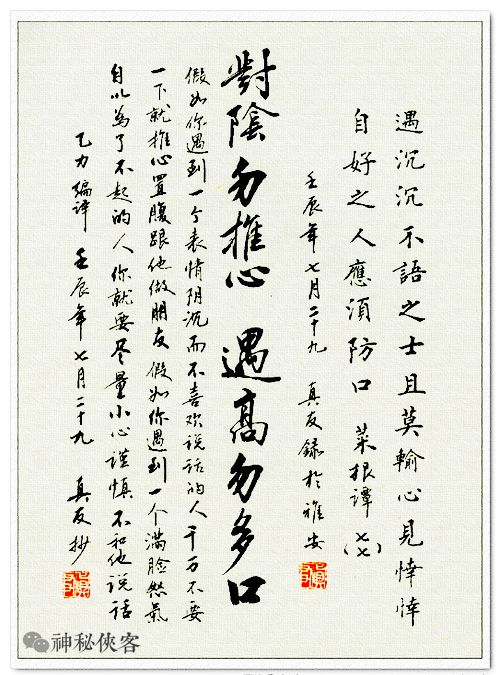 遇沉沉不語之士且莫輸心見悻悻
自好之人應須防口 菜根譚(七七)
壬辰年七月二十九 真友録於雅安
對陰勿推心 遇高勿多口
假如你遇到一个表情阴沉而不喜欢說话的人千万不要
一下就推心置腹跟他做朋友 假如你遇到一个滿臉怒氣
自以為了不起的人你就要尽量小心謹慎不和他說话
乙力编译 壬辰年七月二十九 真友抄
神秘俠客